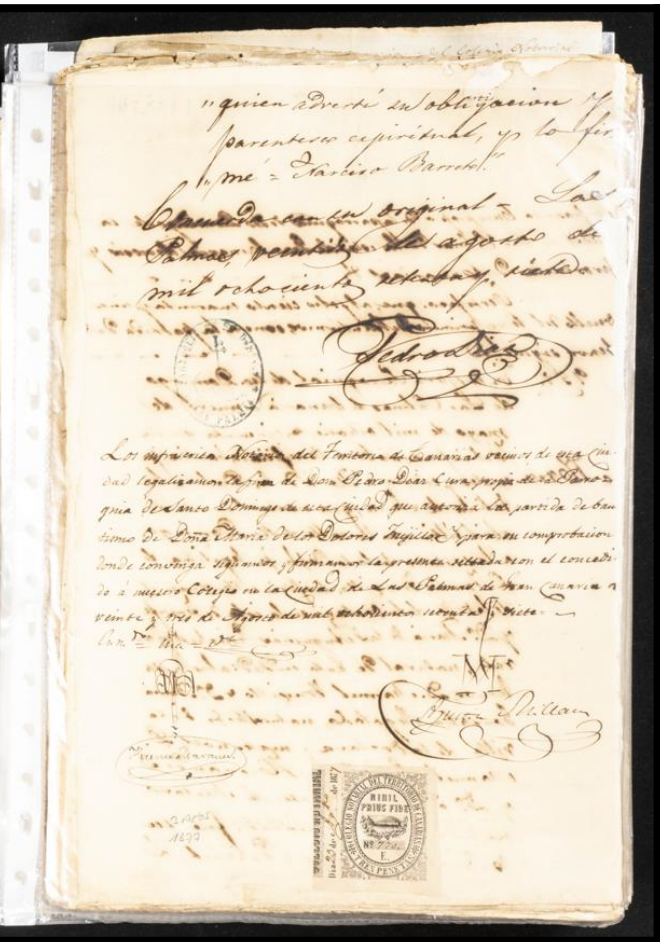 del Colegio Notarial
"quien advertí su obligacion y
parentesco espiritual, y lo fir
"mé = Narciso Barreto."
Concuerda con su original = Las
Palmas, veintidos de agosto de
mil ochocientos setenta y siete
Pedro Diaz
Los infrascritos Notarios del Territorio de Canarias vecinos de esta Ciu-
dad legalizamos la firma de Don Pedro Diaz Cura propio de la Parro-
quia de Santo Domingo de esta Ciudad que autoriza la partida de bau-
tismo de Doña Maria de los Dolores Trujillo y para su comprobacion
donde convenga signamos y firmamos la presente sellada con el concedi-
do á nuestro Colegio en la Ciudad de Las Palmas de Gran Canaria á
veinte y tres de Agosto de mil ochocientos setenta y siete.
Agustin Millares
Vicente
COLEGIO NOTARIAL DEL TERRITORIO DE CANARIAS
NIHIL
PRIUS FIDE
Nº
E.
TRES PESETAS
Dia 23 de de 1877
1877